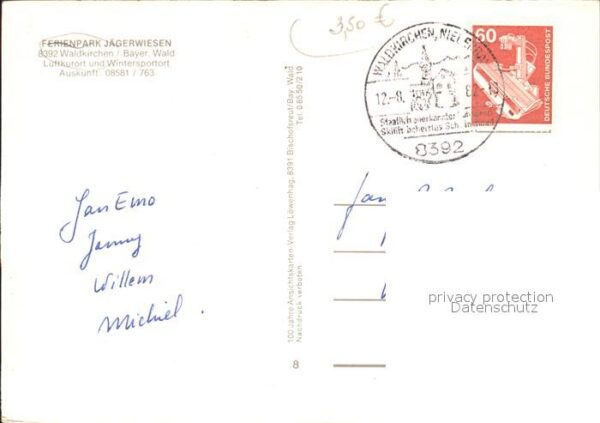 FERIENPARK JÄGERWIESEN
8392 Waldkirchen / Bayer. Wald
Luftkurort und Wintersportort
Auskunft: 08581 / 763
3,50 €
WALDKIRCHEN,
12.-8.
Staatlich anerkannter
8392
60
DEUTSCHE BUNDESPOST
Jan Emo
Janny
Willem
Michiel.
100 Jahre Ansichtskarten-Verlag Löwenhag, 8391 Bischofsreut/Bay. Wald
Nachdruck verboten Tel. 08550/210
8
privacy protection
Datenschutz